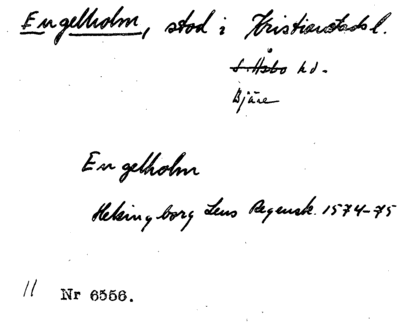 Engelholm, stad i Kristianstads l.
S. Åsbo hd.
Bjäre
Engelholm
Helsingborg Lens Regensk. 1574-75
11 Nr 6556.